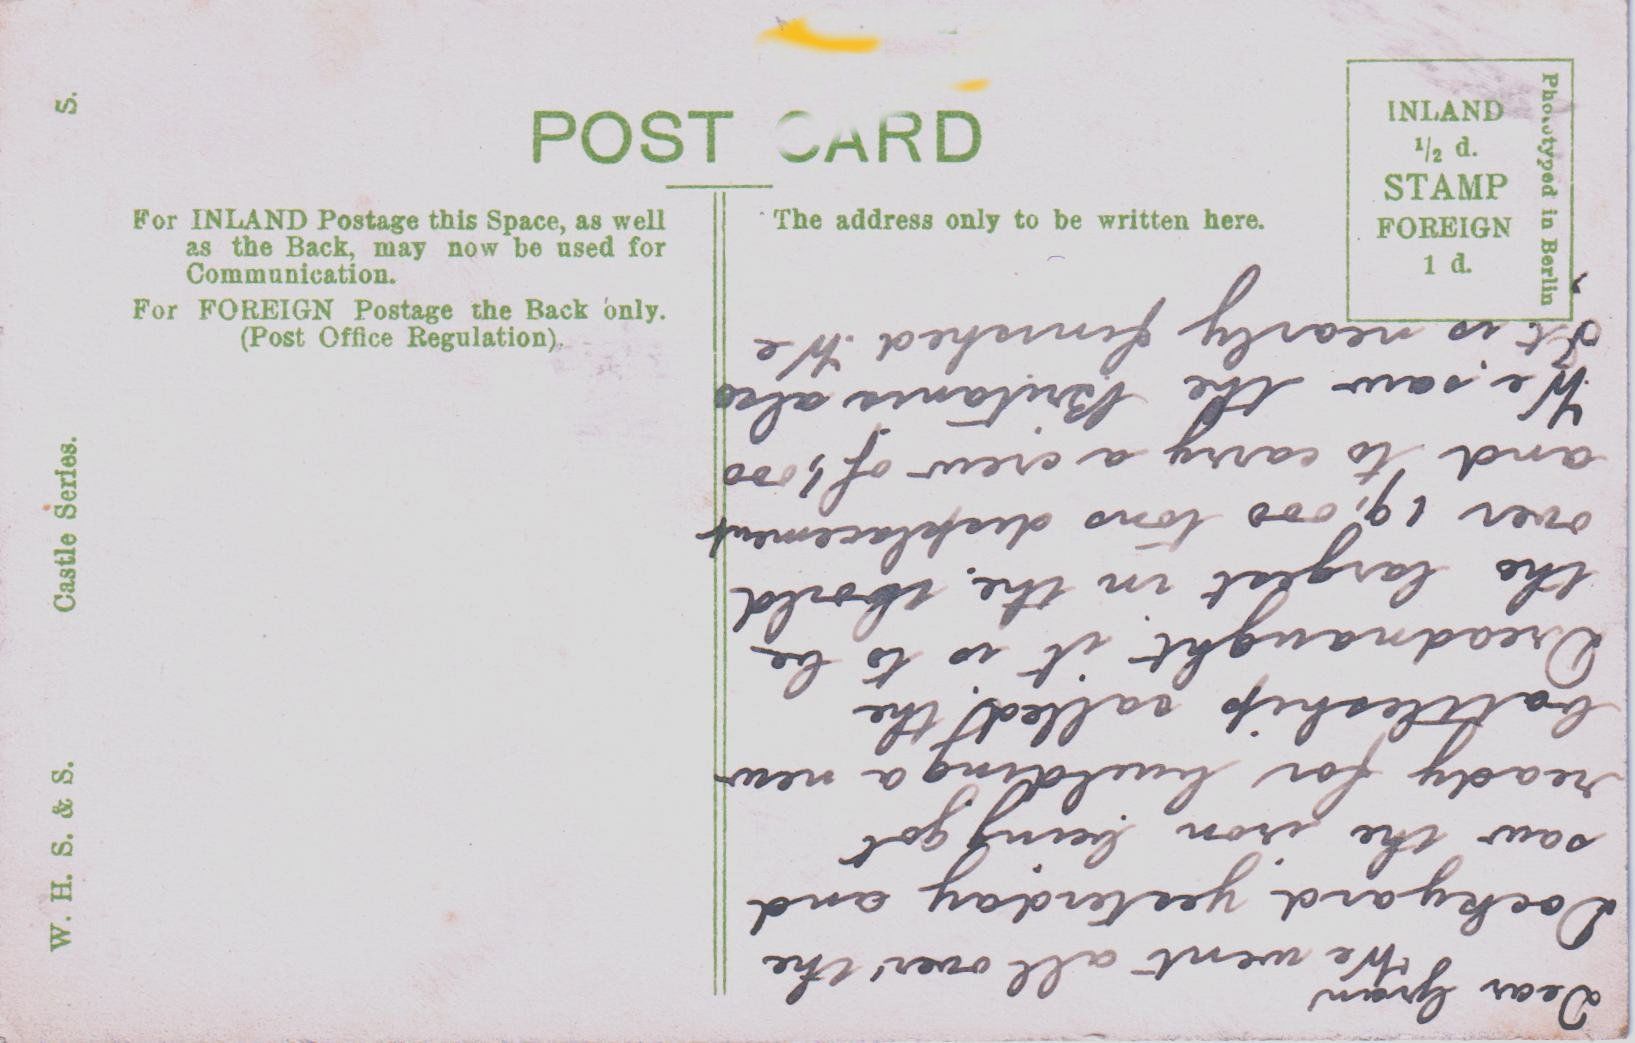 POST CARD
For INLAND Postage this Space, as well
as the Back, may now be used for
Communication.
For FOREIGN Postage the Back only.
(Post Office Regulation).
The address only to be written here.
INLAND
1/2 d.
STAMP
FOREIGN
1 d.
Phototyped in Berlin
W. H. S. & S. Castle Series. S.
Dear Gran
We went all over the
Dockyard yesterday and
saw the iron being got
ready for building a new
battleship called the
Dreadnaught it is to be
the largest in the World
over 19,000 tons displacement
and to carry a crew of 1,000
We saw the Britania also
It is nearly finished. We